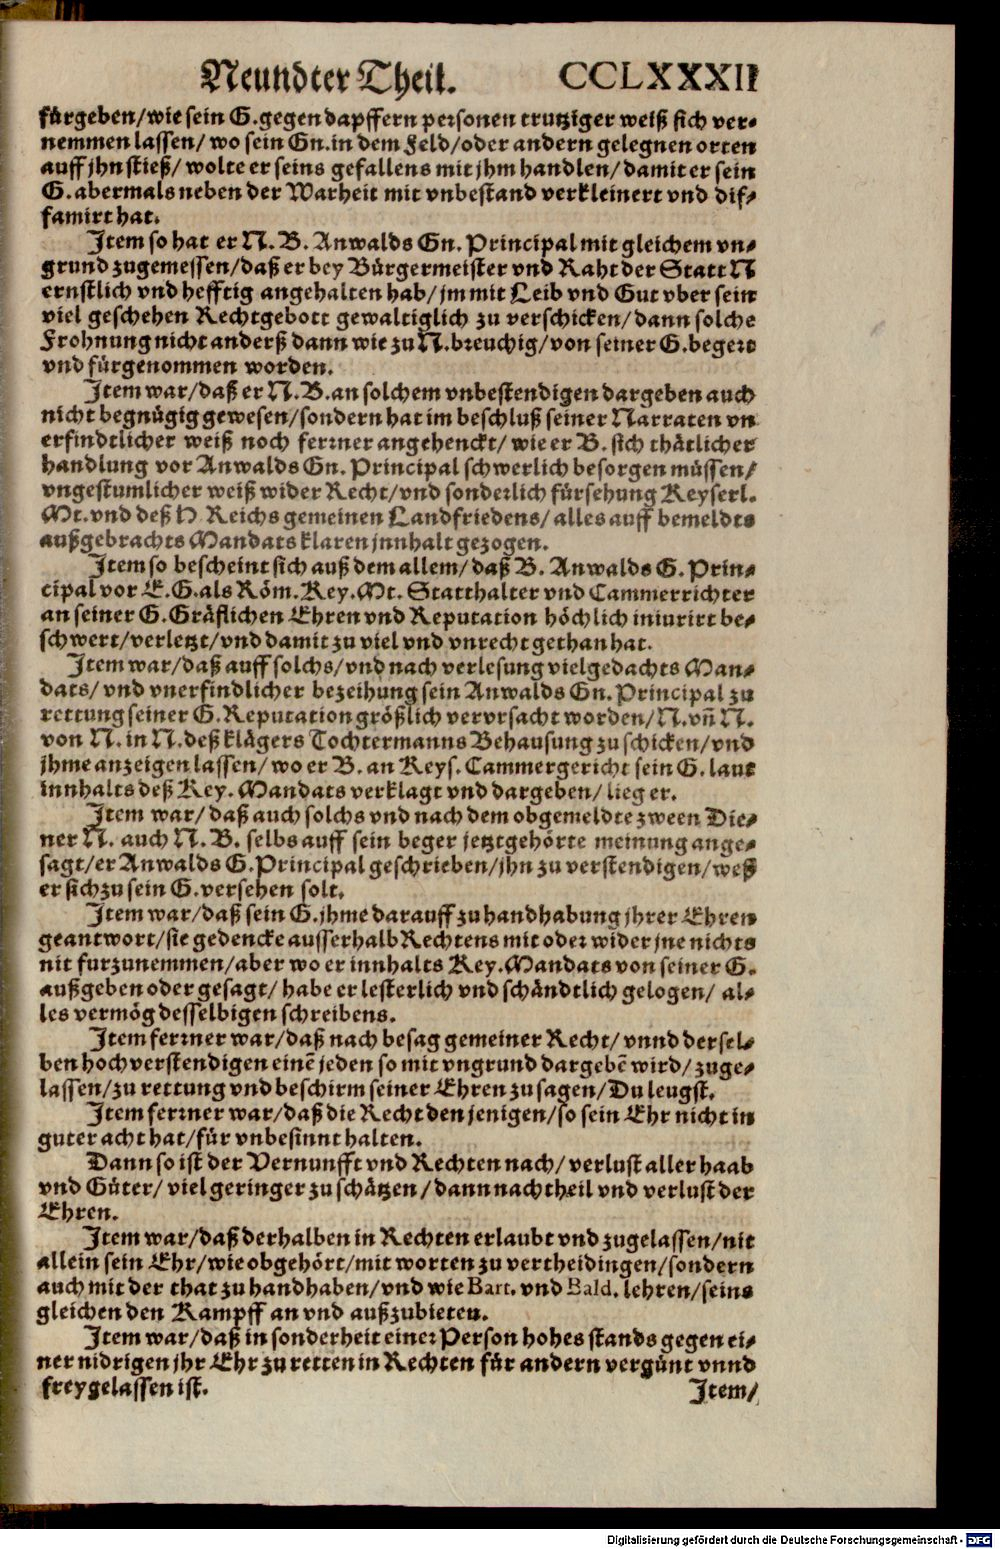 Neundter Theil. CCLXXXII
fürgeben/wie sein G. gegen dapffern personen trutziger weiß sich ver-
nemmen lassen/ wo sein Gn. in dem Feld/oder andern gelegnen orten
auff jhn stieß/ wolte er seins gefallens mit jhm handlen/ damit er sein
G. abermals neben der Warheit mit vnbestand verkleinert vnd dif-
famirt hat.
Item so hat er N. B. Anwalds Gn. Principal mit gleichem vn-
grund zugemessen/daß er bey Bürgermeister vnd Raht der Statt N
ernstlich vnd hefftig angehalten hab/ jm mit Leib vnd Gut vber sein
viel geschehen Rechtgebott gewaltiglich zu verschicken/ dann solche
Frohnung nicht anderß dann wie zu N. breuchig/ von seiner G. begert
vnd fürgenommen worden.
Item war/daß er N. B. an solchem vnbestendigen dargeben auch
nicht begnügig gewesen/sondern hat im beschluß seiner Narraten vn
erfindtlicher weiß noch ferrner angehenckt/ wie er B. sich thätlicher
handlung vor Anwalds Gn. Principal schwerlich besorgen müssen/
vngestumlicher weiß wider Recht/vnd sonderlich fürsehung Keyserl.
Mt. vnd deß H Reichs gemeinen Landfriedens/ alles auff bemeldts
außgebrachts Mandats klaren jnnhalt gezogen.
Item so bescheint sich auß dem allem/ daß B. Anwalds G. Prin-
cipal vor E. G. als Röm. Key. Mt. Statthalter vnd Cammerrichter
an seiner G. Gräflichen Ehren vnd Reputation höchlich iniurirt be-
schwert/verletzt/vnd damit zu viel vnd vnrecht gethan hat.
Item war/daß auff solchs/vnd nach verlesung vielgedachts Man-
dats/ vnd vnerfindlicher bezeihung sein Anwalds Gn. Principal zu
rettung seiner G. Reputation größlich vervrsacht worden/ N. vn̄ N.
von N. in N. deß klägers Tochtermanns Behausung zu schicken/vnd
jhme anzeigen lassen/ wo er B. an Keys. Cammergericht sein G. laut
innhalts deß Key. Mandats verklagt vnd dargeben/ lieg er.
Item war/ daß auch solchs vnd nach dem obgemeldte zween Die-
ner N. auch N. B. selbs auff sein beger jetztgehörte meinung ange-
sagt/er Anwalds G. Principal geschrieben/jhn zu verstendigen/weß
er sich zu sein G. versehen solt.
Item war/daß sein G. jhme darauff zu handhabung jhrer Ehren
geantwort/sie gedencke ausserhalb Rechtens mit oder wider jne nichts
nit furzunemmen/aber wo er innhalts Key. Mandats von seiner G.
außgeben oder gesagt/ habe er lesterlich vnd schändtlich gelogen/ al-
les vermög desselbigen schreibens.
Item ferrner war/daß nach besag gemeiner Recht/ vnnd dersel-
ben hochverstendigen einē jeden so mit vngrund dargebē wird/ zuge-
lassen/zu rettung vnd beschirm seiner Ehren zu sagen/ Du leugst.
Item ferrner war/daß die Recht den jenigen/so sein Ehr nicht in
guter acht hat/für vnbesinnt halten.
Dann so ist der Vernunfft vnd Rechten nach/ verlust aller haab
vnd Güter/ viel geringer zu schätzen/ dann nachtheil vnd verlust der
Ehren.
Item war/daß derhalben in Rechten erlaubt vnd zugelassen/nit
allein sein Ehr/wie obgehört/mit worten zu vertheidingen/sondern
auch mit der that zu handhaben/vnd wie Bart. vnd Bald. lehren/seins
gleichen den Kampff an vnd außzubieten.
Item war/daß in sonderheit einer Person hohes stands gegen ei-
ner nidrigen jhr Ehr zu retten in Rechten für andern vergünt vnnd
freygelassen ist.
Item/
Digitalisierung gefördert durch die Deutsche Forschungsgemeinschaft - DFG